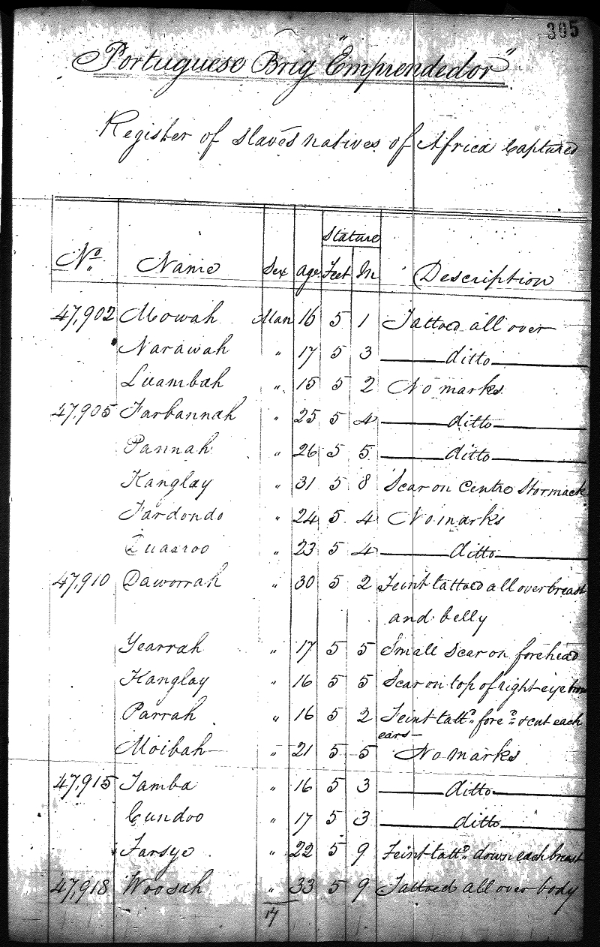 305
Portuguese Brig "Emprendedor"
Register of slaves natives of Africa Captured
Stature
No. Name Sex Age Feet In Description
47,902 Mowah Man 16 5 1 Tattoed all over
Narawah " 17 5 3 ditto
Luambah " 15 5 2 No marks
47,905 Farbannah " 25 5 4 ditto
Pannah " 26 5 5 ditto
Kanglay " 31 5 8 Scar on Centre Stormack
Fardondo " 24 5 4 No marks
Quasroo " 23 5 4 ditto
47,910 Daworrah " 30 5 2 Feint tattoed all over breast
and belly
Yearrah " 17 5 5 Small Scar on forehead
Kanglay " 16 5 5 Scar on top of right eye brow
Parrah " 16 5 2 Feint tattd. fored. & cut each
ears
Moibah " 21 5 5 No marks
47,915 Tamba " 16 5 3 ditto
Cundoo " 17 5 3 ditto
Farsye " 22 5 9 Feint tattd. down each breast
47,918 Woosah " 33 5 9 Tattoed all over body
17